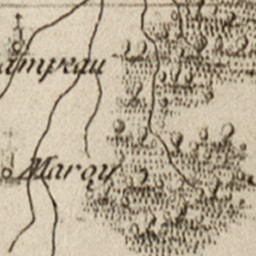 ampeau
Marqy